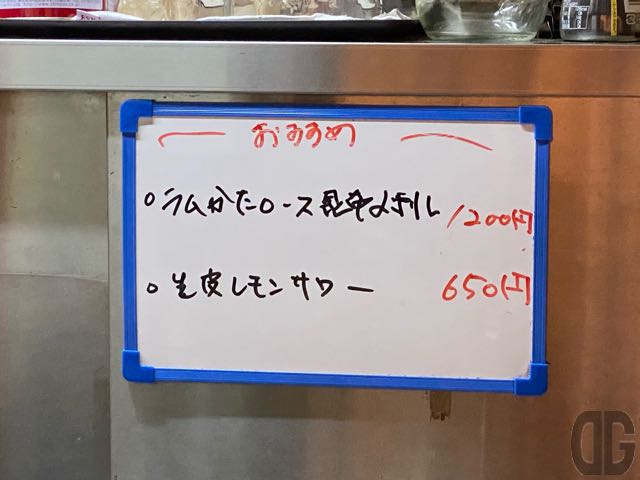 おすすめ
ラムかたロース昆布〆刺し 1200円
生皮レモンサワー 650円
DG